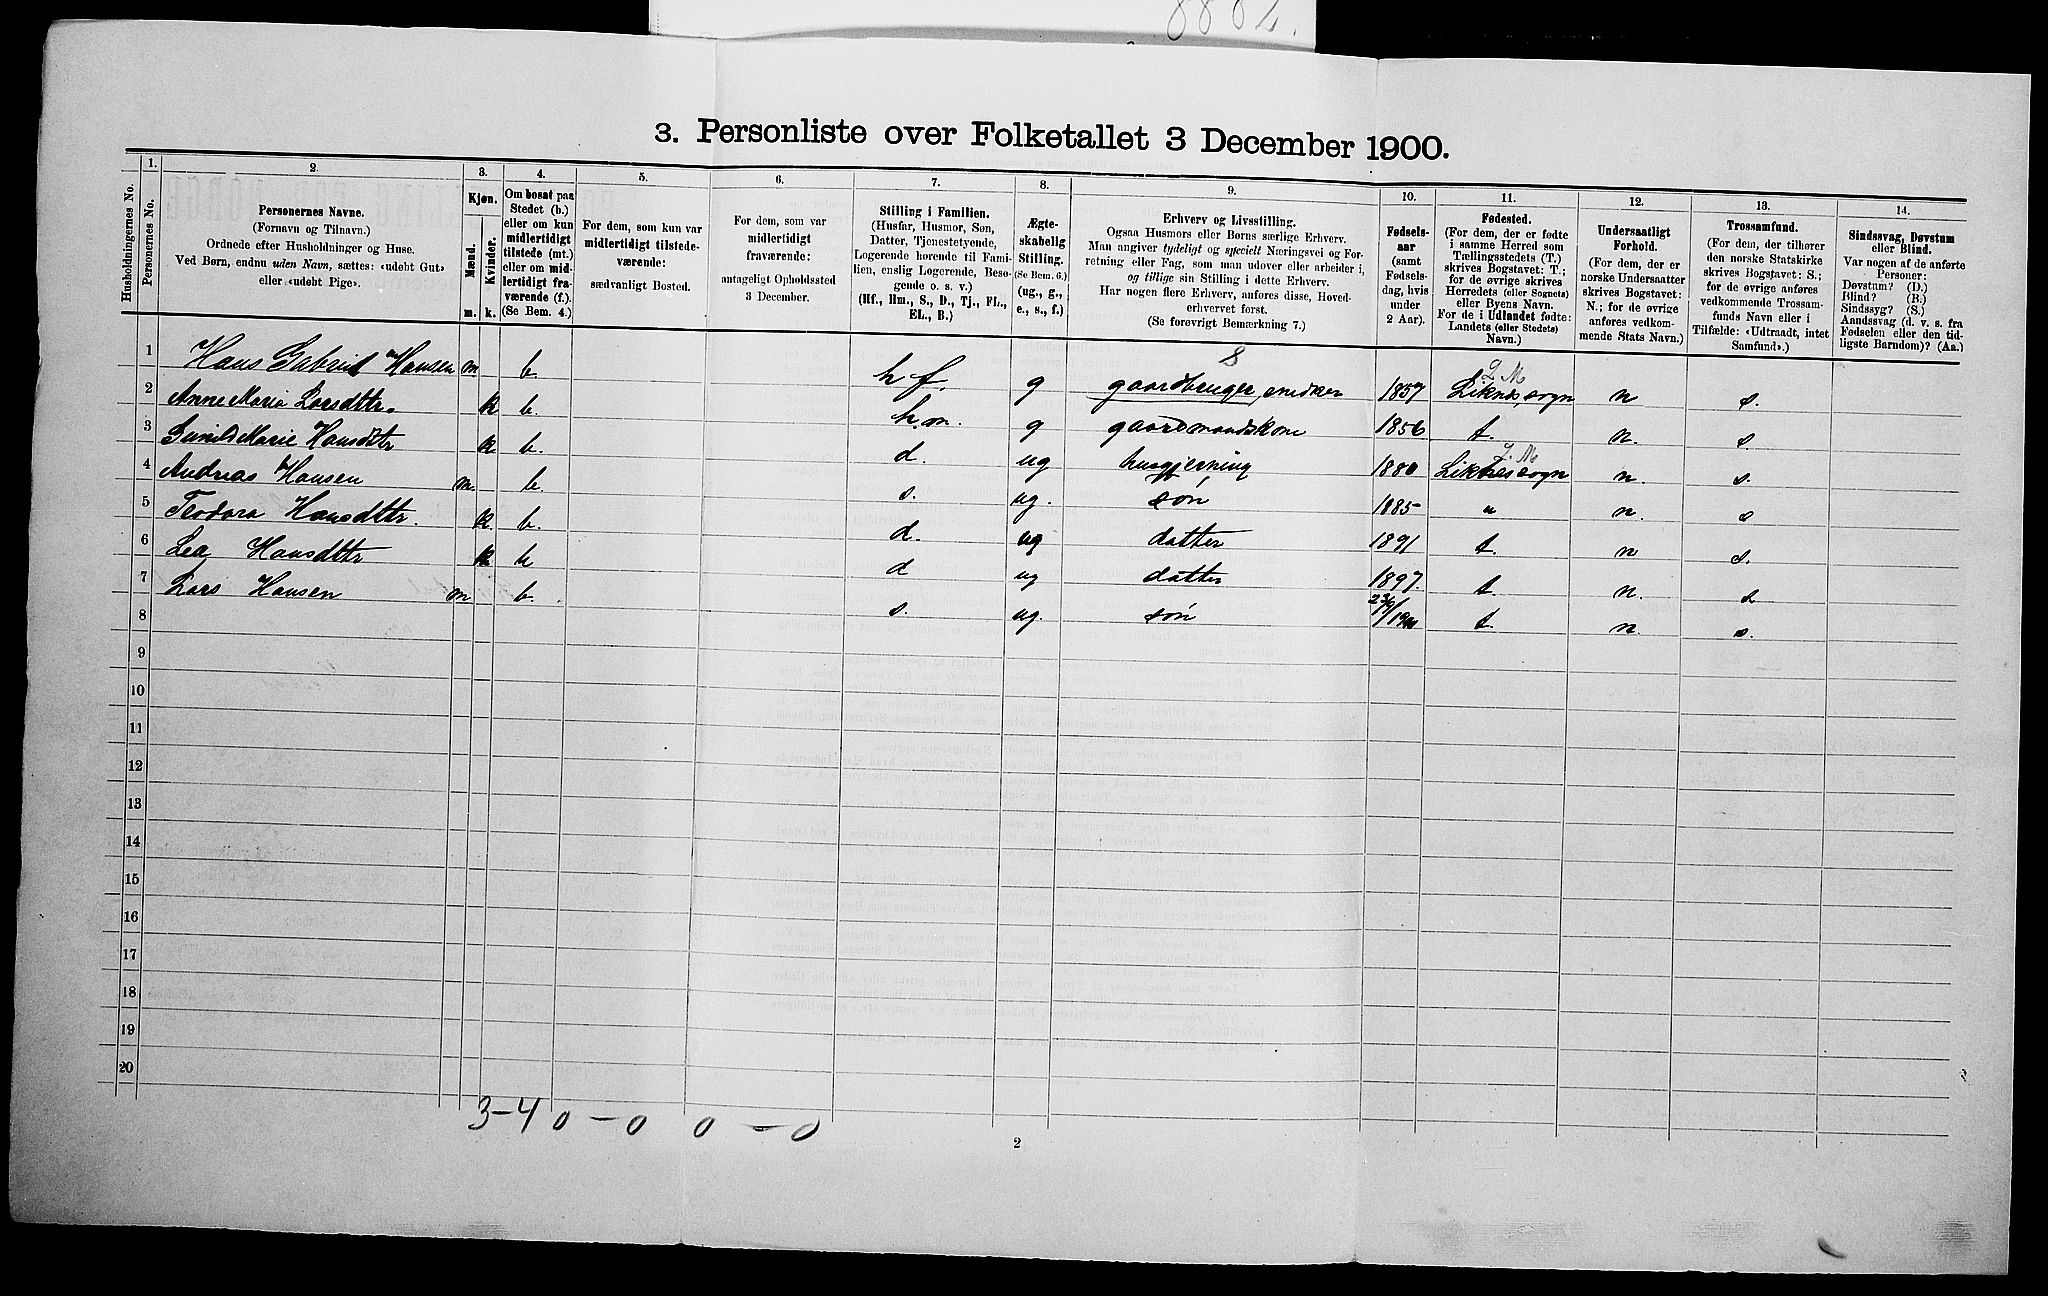 8882.
3. Personliste over Folketallet 3 December 1900.
Husholdningernes No.
1.
Personernes No.
2.
Personernes Navne.
(Fornavn og Tilnavn.)
Ordnede efter Husholdninger og Huse.
Ved Børn, endnu uden Navn, sættes: «udøbt Gut»
eller «udøbt Pige».
3.
Kjøn.
Mænd.
Kvinder.
m. k.
4.
Om bosat paa
Stedet (b.)
eller om kun
midlertidigt
tilstede (mt.)
eller om mid-
lertidigt fra-
værende (f.).
(Se Bem. 4.)
5.
For dem, som kun var
midlertidigt tilstede-
værende:
sædvanligt Bosted.
6.
For dem, som var
midlertidigt
fraværende:
antageligt Opholdssted
3 December.
7.
Stilling i Familien.
(Husfar, Husmor, Søn,
Datter, Tjenestetyende,
Logerende hørende til Fami-
lien, enslig Logerende, Besø-
gende o. s. v.)
(Hf., Hm., S., D., Tj., FL.,
EL., B.)
8.
Ægte-
skabelig
Stilling.
(Se Bem. 6.)
(ug., g.,
e., s., f.)
9.
Erhverv og Livsstilling.
Ogsaa Husmors eller Børns særlige Erhverv.
Man angiver tydeligt og specielt Næringsvei og For-
retning eller Fag, som man udover eller arbeider i,
og tillige sin Stilling i dette Erhverv.
Har nogen flere Erhverv, anføres disse, Hoved-
erhvervet først.
(Se forøvrigt Bemærkning 7.)
10.
Fødsels-
aar
(samt
Fødsels-
dag, hvis
under
2 Aar).
11.
Fødested.
(For dem, der er fødte
i samme Herred som
Tællingsstedets (T.)
skrives Bogstavet: T.;
for de øvrige skrives
Herredets (eller Sognets)
eller Byens Navn.
For de i Udlandet fødte:
Landets (eller Stedets)
Navn.)
12.
Undersaatligt
Forhold.
(For dem, der er
norske Undersaatter
skrives Bogstavet:
N.; for de øvrige
anføres vedkom-
mende Stats Navn.)
13.
Trossamfund.
(For dem, der tilhører
den norske Statskirke
skrives Bogstavet: S.;
for de øvrige anføres
vedkommende Trossam-
funds Navn eller i
Tilfælde: «Udtraadt, intet
Samfund».)
14.
Sindssvag, Døvstum
eller Blind.
Var nogen af de anførte
Personer:
Døvstum? (D.)
Blind? (B.)
Sindssyg? (S.)
Aandssvag (d. v. s. fra
Fødselen eller den tid-
ligste Barndom)? (Aa.)
8
L M
1 Hans Gabriel Hansen m b. h f. g gaardbruger, snedker 1857 Liknessogn n s.
2 Anne Maria Larsdttr. k b. h.m. g gaardmandskone 1856 t. n. s
L. M
3 Gunild Marie Hansdttr k b. d. ug husgjerning 1880 Liknessogn n. s.
4 Andreas Hansen m. b. s. ug. søn 1885 " n. s
5 Teodora Hansdttr. k. b. d. ug datter 1891 t. n s.
6 Lea Hansdttr k b d ug datter 1897. t n. s
7 Lars Hansen m b. s. ug. søn /1900 t. n. s.
8
9
10
11
12
13
14
15
16
17
18
19
20
3-4 0 - 0 0 - 0
2